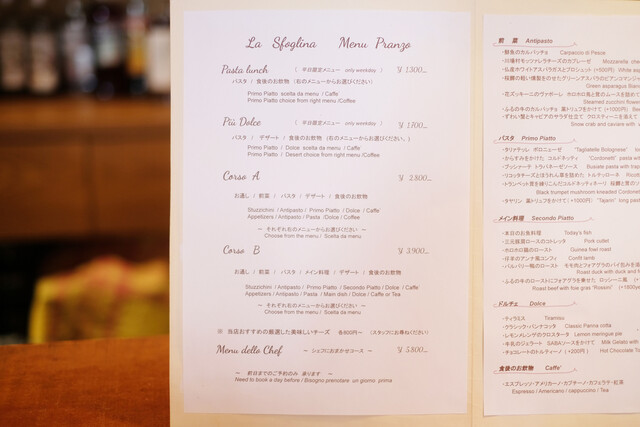 La Sfoglina Menu Pranzo
Pasta lunch （ 平日限定メニュー only weekday ） ¥ 1300_
パスタ / 食後のお飲物 （右のメニューからお選びください）
Primo Piatto scelta da menu / Caffe'
Primo Piatto choose from right menu /Coffee
Più Dolce （ 平日限定メニュー only weekday ） ¥ 1700_
パスタ / デザート / 食後のお飲物 （右のメニューからお選びください。）
Primo Piatto / Dolce scelta da menu / Caffe'
Primo Piatto / Desert choose from right menu /Coffee
Corso A ¥ 2800_
お通し / 前菜 / パスタ / デザート / 食後のお飲物
Stuzzichini /Antipasto / Primo Piatto / Dolce / Caffe'
Appetizers /Antipasto / Pasta /Dolce / Coffee
ー それぞれ右のメニューからお選びください ー
Choose from the menu / Scelta da menu
Corso B ¥ 3900_
お通し / 前菜 / パスタ / メイン料理 / デザート / 食後のお飲物
Stuzzichini /Antipasto / Primo Piatto / Secondo Piatto / Dolce / Caffe'
Appetizers /Antipasto / Pasta / Main dish / Dolce / Caffe or Tea
ー それぞれ右のメニューからお選びください ー
Choose from the menu / Scelta da menu
※ 当店おすすめの厳選した美味しいチーズ 各600円〜 （スタッフにお尋ねください）
Menu delle Chef ー シェフにおまかせコース ー ¥ 5800_
ー 前日までのご予約のみ 承ります ー
Need to book a day before / Bisogno prenotare un giorno prima
前 菜 Antipasto
・鮮魚のカルパッチョ Carpaccio di Pesce
・川場村モッツァレラチーズのカプレーゼ Mozzarella chee
・仏産ホワイトアスパラガスとプロシュット (+500円) White aspa
Green asparagus Bian
Steamed zucchini flower
・ふるの牛のカルパッチョ 黒トリュフをかけて (+1000円) Bee
・ずわい蟹とキャビアのサラダ仕立て クロスティーニを添えて
Snow crab and caviar with
パスタ Primo Piatto
・タリアテッレ ボロニェーゼ "Tagliatelle Bolognese"
・からすみをかけた コルドネッティ "Cordonetti" pasta with
・ブッシアーテ トラパネーゼソース Busiate pasta with trapa
・リコッタチーズとほうれん草を詰めた トルテッローネ Ricott
Black trumpet mushroom kneaded Cordonett
・タヤリン 黒トリュフをかけて (+1000円) "Tajarin" long pasta
メイン料理 Secondo Piatto
・本日のお魚料理 Today's fish
・三元豚肩ロースのコトレッタ Pork cutlet
・ホロホロ鶏のロースト Guinea fowl roast
・仔羊のアンナ風コンフィ Confit lamb
・バルバリー鴨のロースト モモ肉とフォアグラのパイ包みを添
Roast duck with duck and f
・ふるの牛のローストにフォアグラを乗せた ロッシーニ風
Roast beef with foie gras "Rossini" (+1800
ドルチェ Dolce
・ティラミス Tiramisu
・クラシック・パンナコッタ Classic Panna cotta
・レモンメレンゲのクロスタータ Lemon meringue pie
・牛乳のジェラート SABAソースをかけて Milk Gelato with
・チョコレートのトルティーノ (+200円) Hot Chocolate To
食後のお飲物 Caffe'
・エスプレッソ・アメリカーノ・カプチーノ・カフェラテ・紅茶
Espresso / Americano / cappuccino / Tea